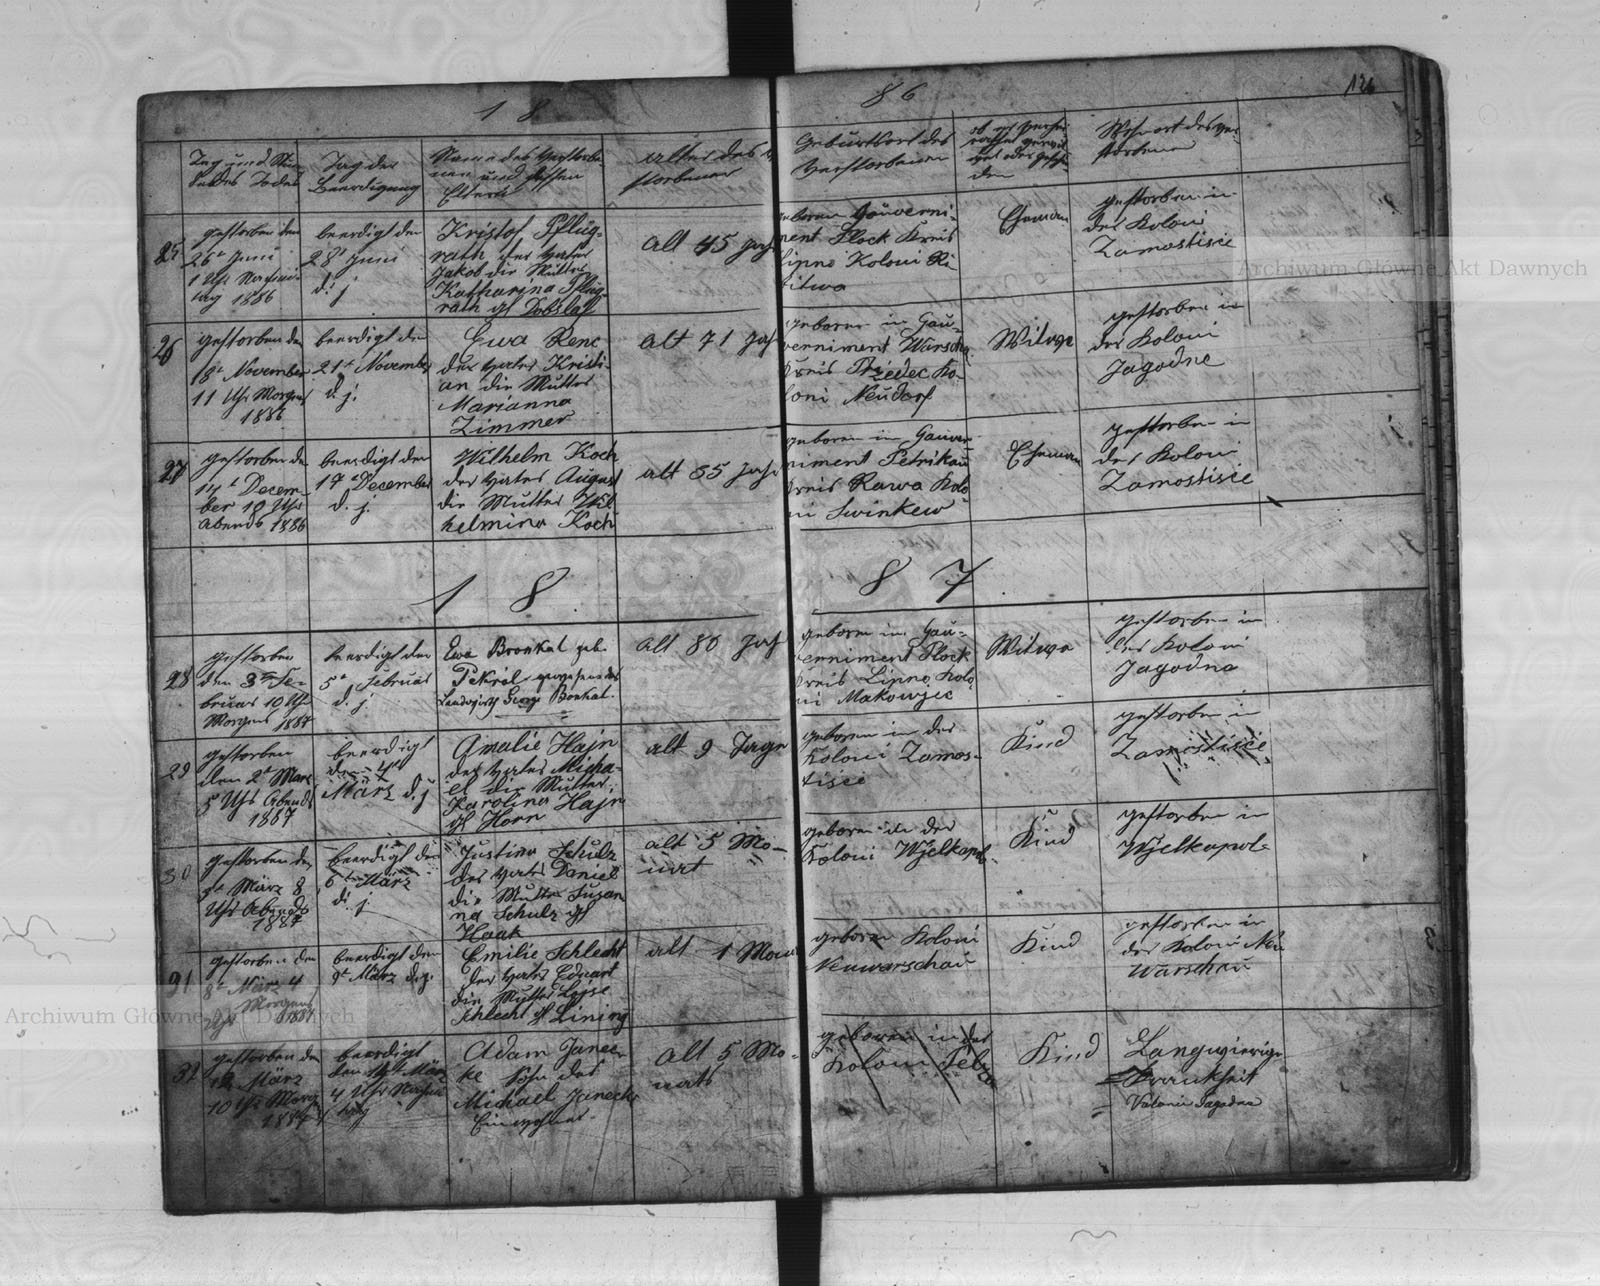 18
86
126
Tag und Stun-
de des Todes
Tag der
Beerdigung
Name des Verstorbe-
nen und dessen
Eltern
Alter des Ver-
storbenen
Geburtsort des
Verstorbenen
Wohnort des Ver-
storbenen
25
gestorben den
26t Juni
1 Uhr Nachmit-
tag 1886
beerdigt den
28t Juni
d. j.
Kristof Pflug-
rath der Vater
Jakob die Mutter
Katharina Pflug-
rath gb Dobslaf
Alt 45 Jahr
geboren Gouverni-
ment Plock Kreis
Lipno Koloni Ri-
titwa
Eheman
gestorben in
der Koloni
Zamostisce
26
gestorben den
18t November
11 Uhr Morgens
1886
beerdigt den
21t November
d. j.
Ewa Renc
der Vater Kristi-
an die Mutter
Marianna
Zimmer
Alt 71 Jahr
geboren in Gou-
verniment Warschau
Kreis Ko-
loni Neudorf
Witwe
gestorben in
der Koloni
Jagodne
27
gestorben den
14t Decem-
ber 10 Uhr
Abends 1886
beerdigt den
17t December
d. j.
Wilhelm Koch
der Vater August
die Mutter Wil-
helmina Koch
alt 35 Jahr
geboren im Gouver-
niment Petrikau
Kreis Rawa Kolo-
ni Swinkew
Eheman
gestorben in
der Koloni
Zamostisce
1887
28
gestorben
den 3ten Fe-
bruar 10 Uhr
Morgens 1887
beerdigt den
5t Februar
d. j.
Ewa Bronkal geb.
Pekral gewesene des
Landwirth Georg Bonkal.
Alt 80 Jahr
geboren im Gou-
verniment Plock
Kreis Lipno Kolo-
ni Makowjec
Witwe
gestorben in
der Koloni
Jagodno
29
gestorben
den 2t März
5 Uhr Abends
1887
beerdigt
den 4t
März d. j.
Amalie Hajn
der Vater Micha-
el die Mutter
Karolina Hajn
gb Horn
alt 9 Tage
geboren in der
Koloni Zamos-
tisce
Kind
gestorben in
Zamostisce
30
gestorben den
März 8
Uhr Abends
1887
beerdigt den
6t März
d. j.
Justina Schulz
der Vater Daniel
die Mutter Susan
na Schulz gb
Haak
alt 5 Mo-
nat
geboren in der
Koloni Wjelkapol-
Kind
gestorben in
Wjelkapole
31
gestorben den
8t März 4
Morgens
Uhr 1887
beerdigt den
9t März d. j.
Emilie Schlecht
der Vater Eduart
die Mutter Lojse
Schlecht gb Lining
alt 1 Monat
geboren Koloni
Neuwarschau
Kind
gestorben in
der Koloni Neu
Warschau
32
gestorben den
12 März
10 Uhr Morg.
1887
beerdigt
den März
4 Uhr Nachmit
tag
Adam Janec-
ke Sohn des
Michael Janecke
Einwohner
Alt 5 Mo-
nats
geboren in der
Koloni
Kind
Langwierige
Krankheit
Koloni Jagodne
Archiwum Główne Akt Dawnych
Archiwum Główne Akt Dawnych